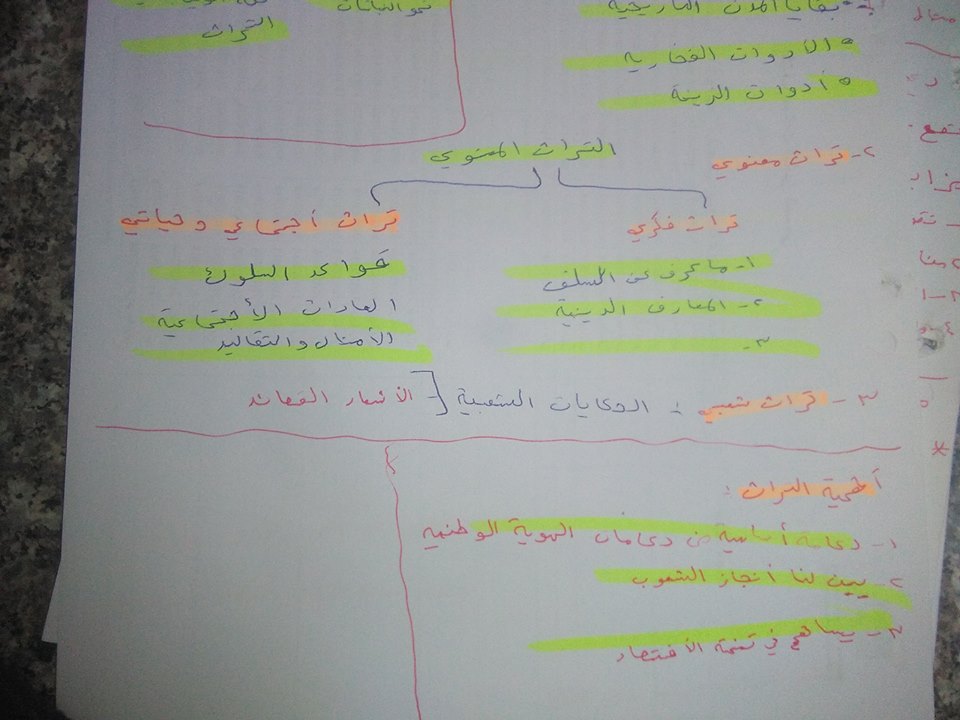 بقايا المدن التاريخية
الأدوات الفخارية
أدوات الزينة
نمو النباتات
التراث
٢- تراث معنوي
التراث المعنوي
تراث فكري
١- ما عرف عن السلف
٢- المعارف الدينية
٣-
تراث أجتماعي وحياتي
قواعد السلوك
العادات الأجتماعية
الأمثال والتقاليد
٣- تراث شعبي : الحكايات الشعبية [ الأشعار القصائد
أهمية التراث :
١- دعامة أساسية من دعامات الهوية الوطنيه
٢- يبين لنا أنجاز الشعوب
٣- يساهم في تنمية الاقتصاد
مثال
*